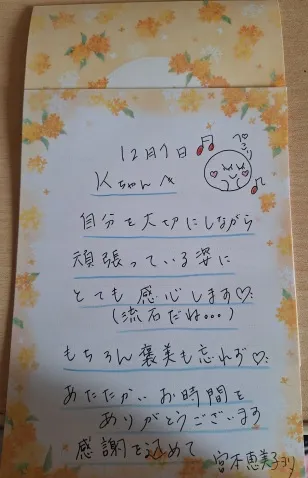 12月7日
ペコリ
Kちゃんへ
自分を大切にしながら
頑張っている姿に
とても感心します♡
(流石だね...)
もちろん褒美も忘れず♡
あたたかいお時間を
ありがとうございます
感謝を込めて
宮本恵美子より